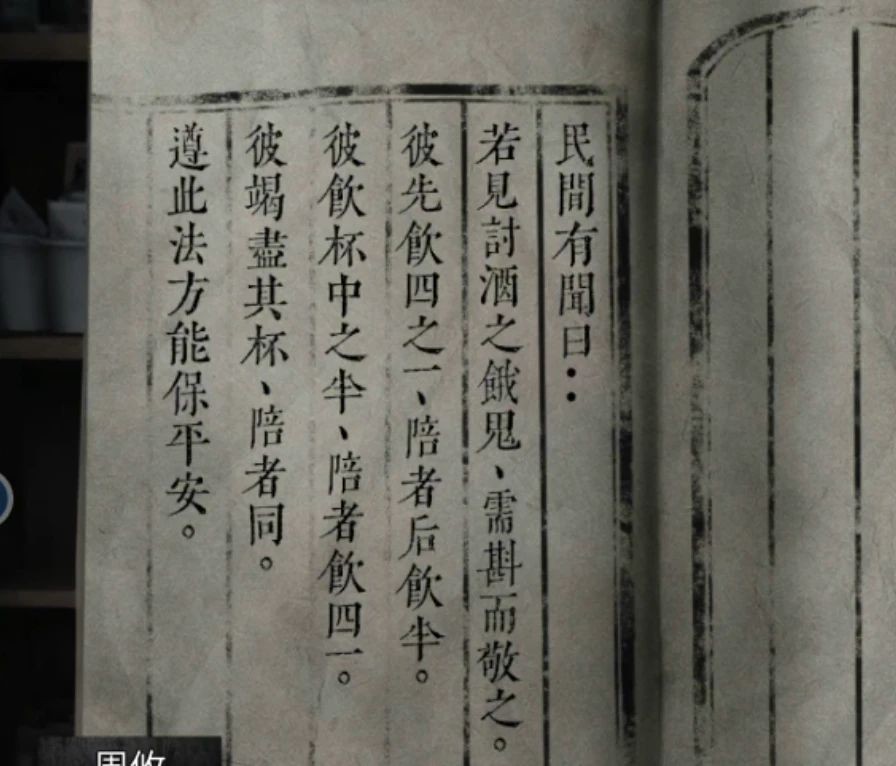 民間有聞曰：
若見討酒之餓鬼、需斟而敬之。
彼先飲四之一、陪者后飲半。
彼飲杯中之半、陪者飲四一。
彼竭盡其杯、陪者同。
遵此法方能保平安。